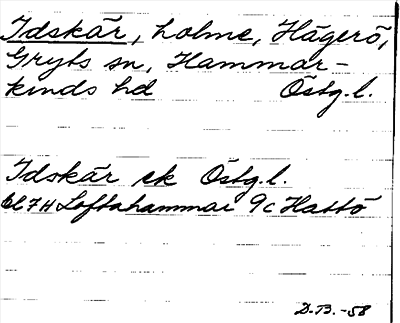 Idskär, holme, Hägerö,
Gryts sn, Hammar-
kinds hd Östg.l.
Idskär ek Östg.l.
bl 7H Loftahammar 9c Hattö
D.-B.-58